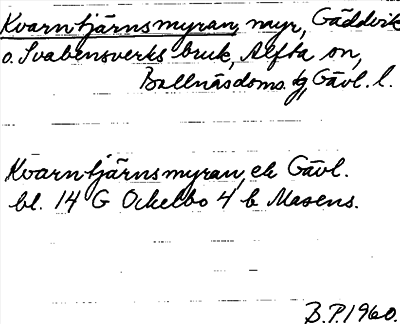 Kvarntjärnsmyran, myr, Gäddvik
o. Svabensverks bruk, Alfta sn,
Bollnäsdoms. tg, Gävl. l.
Kvarntjärnsmyran, ek Gävl.
bl. 14 G Ockelbo 4 b Masens.
B.P. 1960.